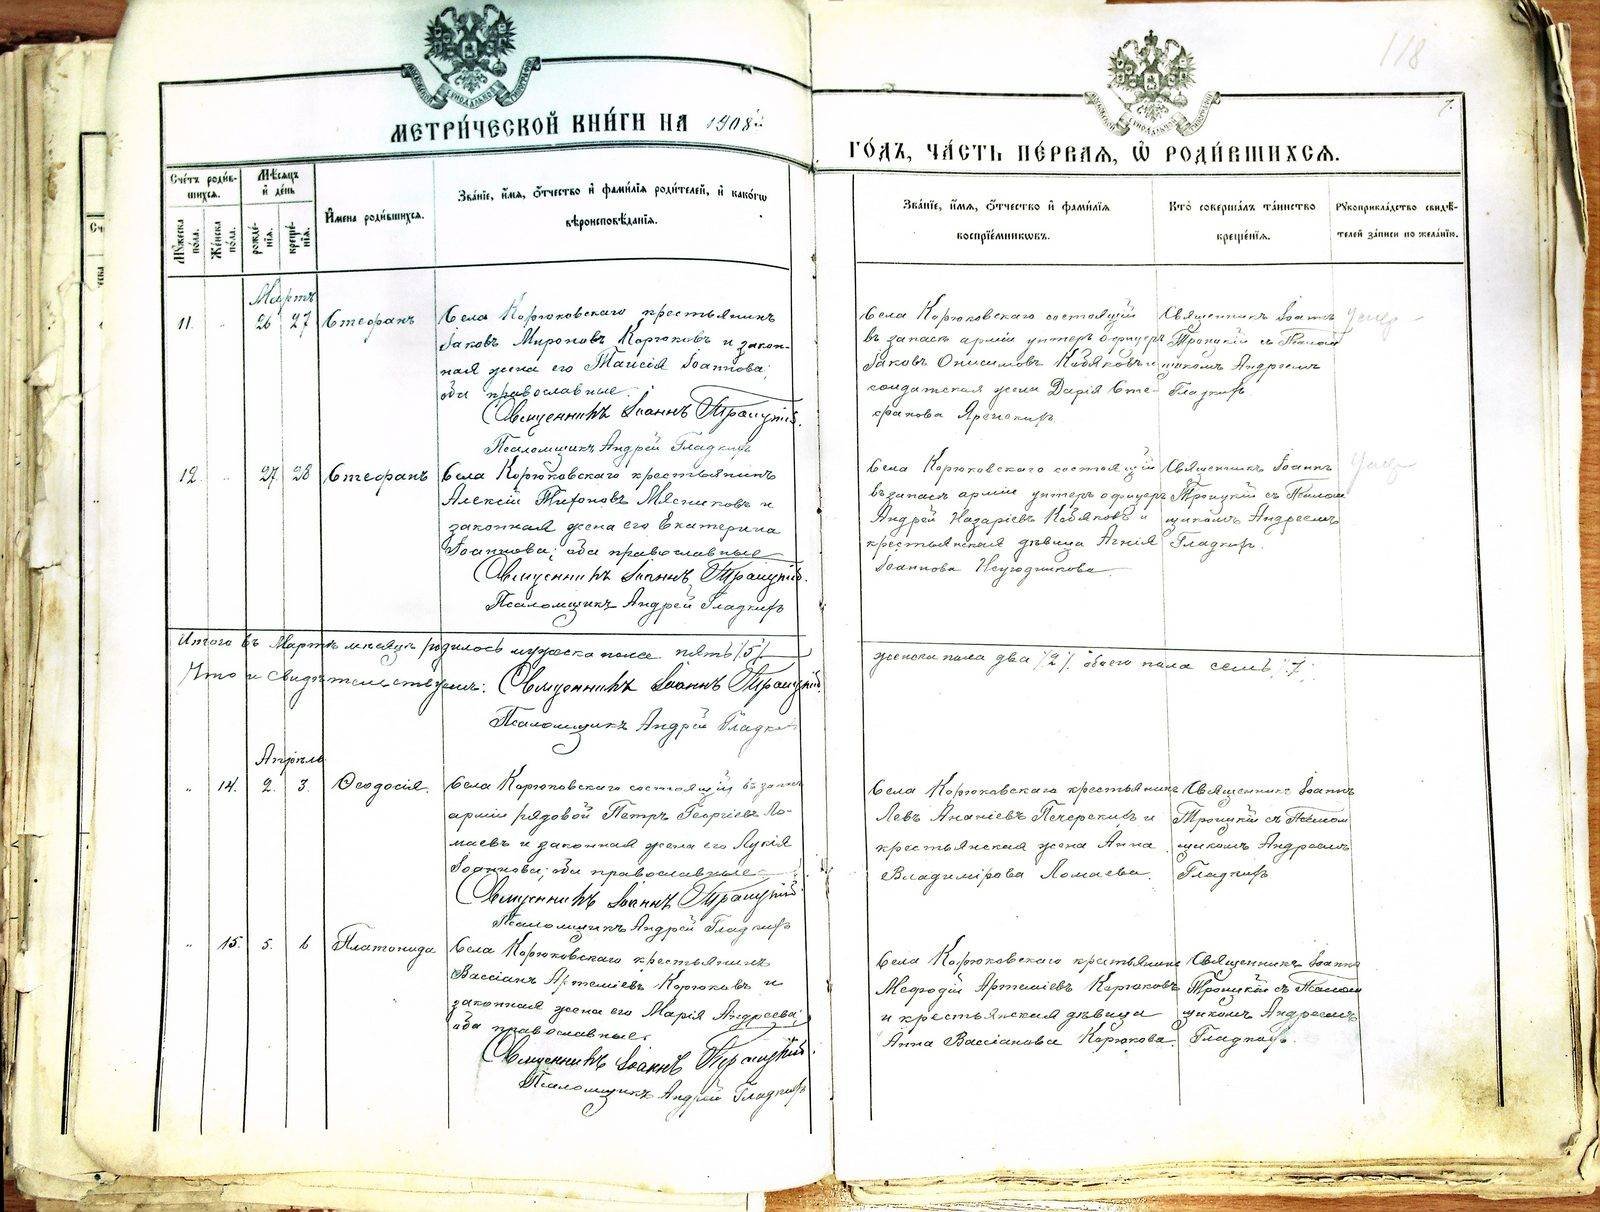 118
МЕТРИЧЕСКОЙ КНИГИ НА 1908й
ГОДЪ, ЧАСТЬ ПЕРВАЯ, Ѿ РОДИВШИХСЯ.
7.
Счетъ родив-
шихся.
Мужеска пола.
Женска пола.
Мѣсяцъ
и день
рожде-
нія.
креще-
нія.
Имена родившихся.
Званіе, имя, отчество и фамилія родителей, и какогѡ
вѣроисповѣданія.
Званіе, имя, отчество и фамилія
воспріемникѡвъ.
Кто совершалъ таинство
крещенія.
Рукоприкладство свидѣ-
телей записи по желанію.
Мартъ
11. " 26 27 Стефанъ
Села Корюковскаго крестьянинъ
Іаковъ Мироновъ Корюковъ и закон-
ная жена его Таисія Іоаннова;
оба православные.
Священникъ Іоаннъ Троицкій.
Псаломщикъ Андрей Гладкихъ
Села Корюковскаго состоящій
въ запасѣ арміи унтеръ офицеръ
Іаковъ Онисимовъ Кобяковъ и
солдатская жена Дарія Сте-
фанова
Священникъ Іоаннъ
Троицкій съ Псалом
щикомъ Андреемъ
Гладкихъ
12. " 27 28 Стефанъ
Села Корюковскаго крестьянинъ
Алексій Тихоновъ Мясниковъ и
законная жена его Екатерина
Іоаннова; оба православные
Священникъ Іоаннъ Троицкій.
Псаломщикъ Андрей Гладкихъ
Села Корюковскаго состоящій
въ запасѣ арміи унтеръ офицеръ
Андрей Назаріевъ Кобяковъ и
крестьянская дѣвица Агнія
Іоаннова Неугодникова
Священникъ Іоаннъ
Троицкій съ Псалом
щикомъ Андреемъ
Гладкихъ.
Итого въ Мартѣ мѣсяцѣ родилось мужеска пола пять /5/
женска пола два /2/ обоего пола семь /7/.
Что и свидѣтельствуемъ: Священникъ Іоаннъ Троицкій
Псаломщикъ Андрей Гладких
Апрѣль
" 14. 2. 3. Ѳеодосія.
Села Корюковскаго состоящій въ запасѣ
арміи рядовой Петръ Георгіевъ Ло-
маевъ и законная жена его Лукія
Іоаннова; оба православные
Священникъ Іоаннъ Троицкій
Псаломщикъ Андрей Гладкихъ
Села Корюковскаго крестьянинъ
Левъ Ананіевъ Печеркинъ и
крестьянская жена Анна
Владимірова Ломаева.
Священникъ Іоаннъ
Троицкій съ Псалом
щикомъ Андреемъ
Гладкихъ
" 15. 5. 6 Платонида
Села Корюковскаго крестьянинъ
Вассіанъ Артеміевъ Корюковъ и
законная жена его Марія Андреева;
оба православные.
Священникъ Іоаннъ Троицкій.
Псаломщикъ Андрей Гладкихъ
Села Корюковскаго крестьянинъ
Меѳодій Артеміевъ Корюковъ
и крестьянская дѣвица
Анна Вассіанова Корюкова.
Священникъ Іоаннъ
Троицкій съ Псалом
щикомъ Андреемъ
Гладкихъ.